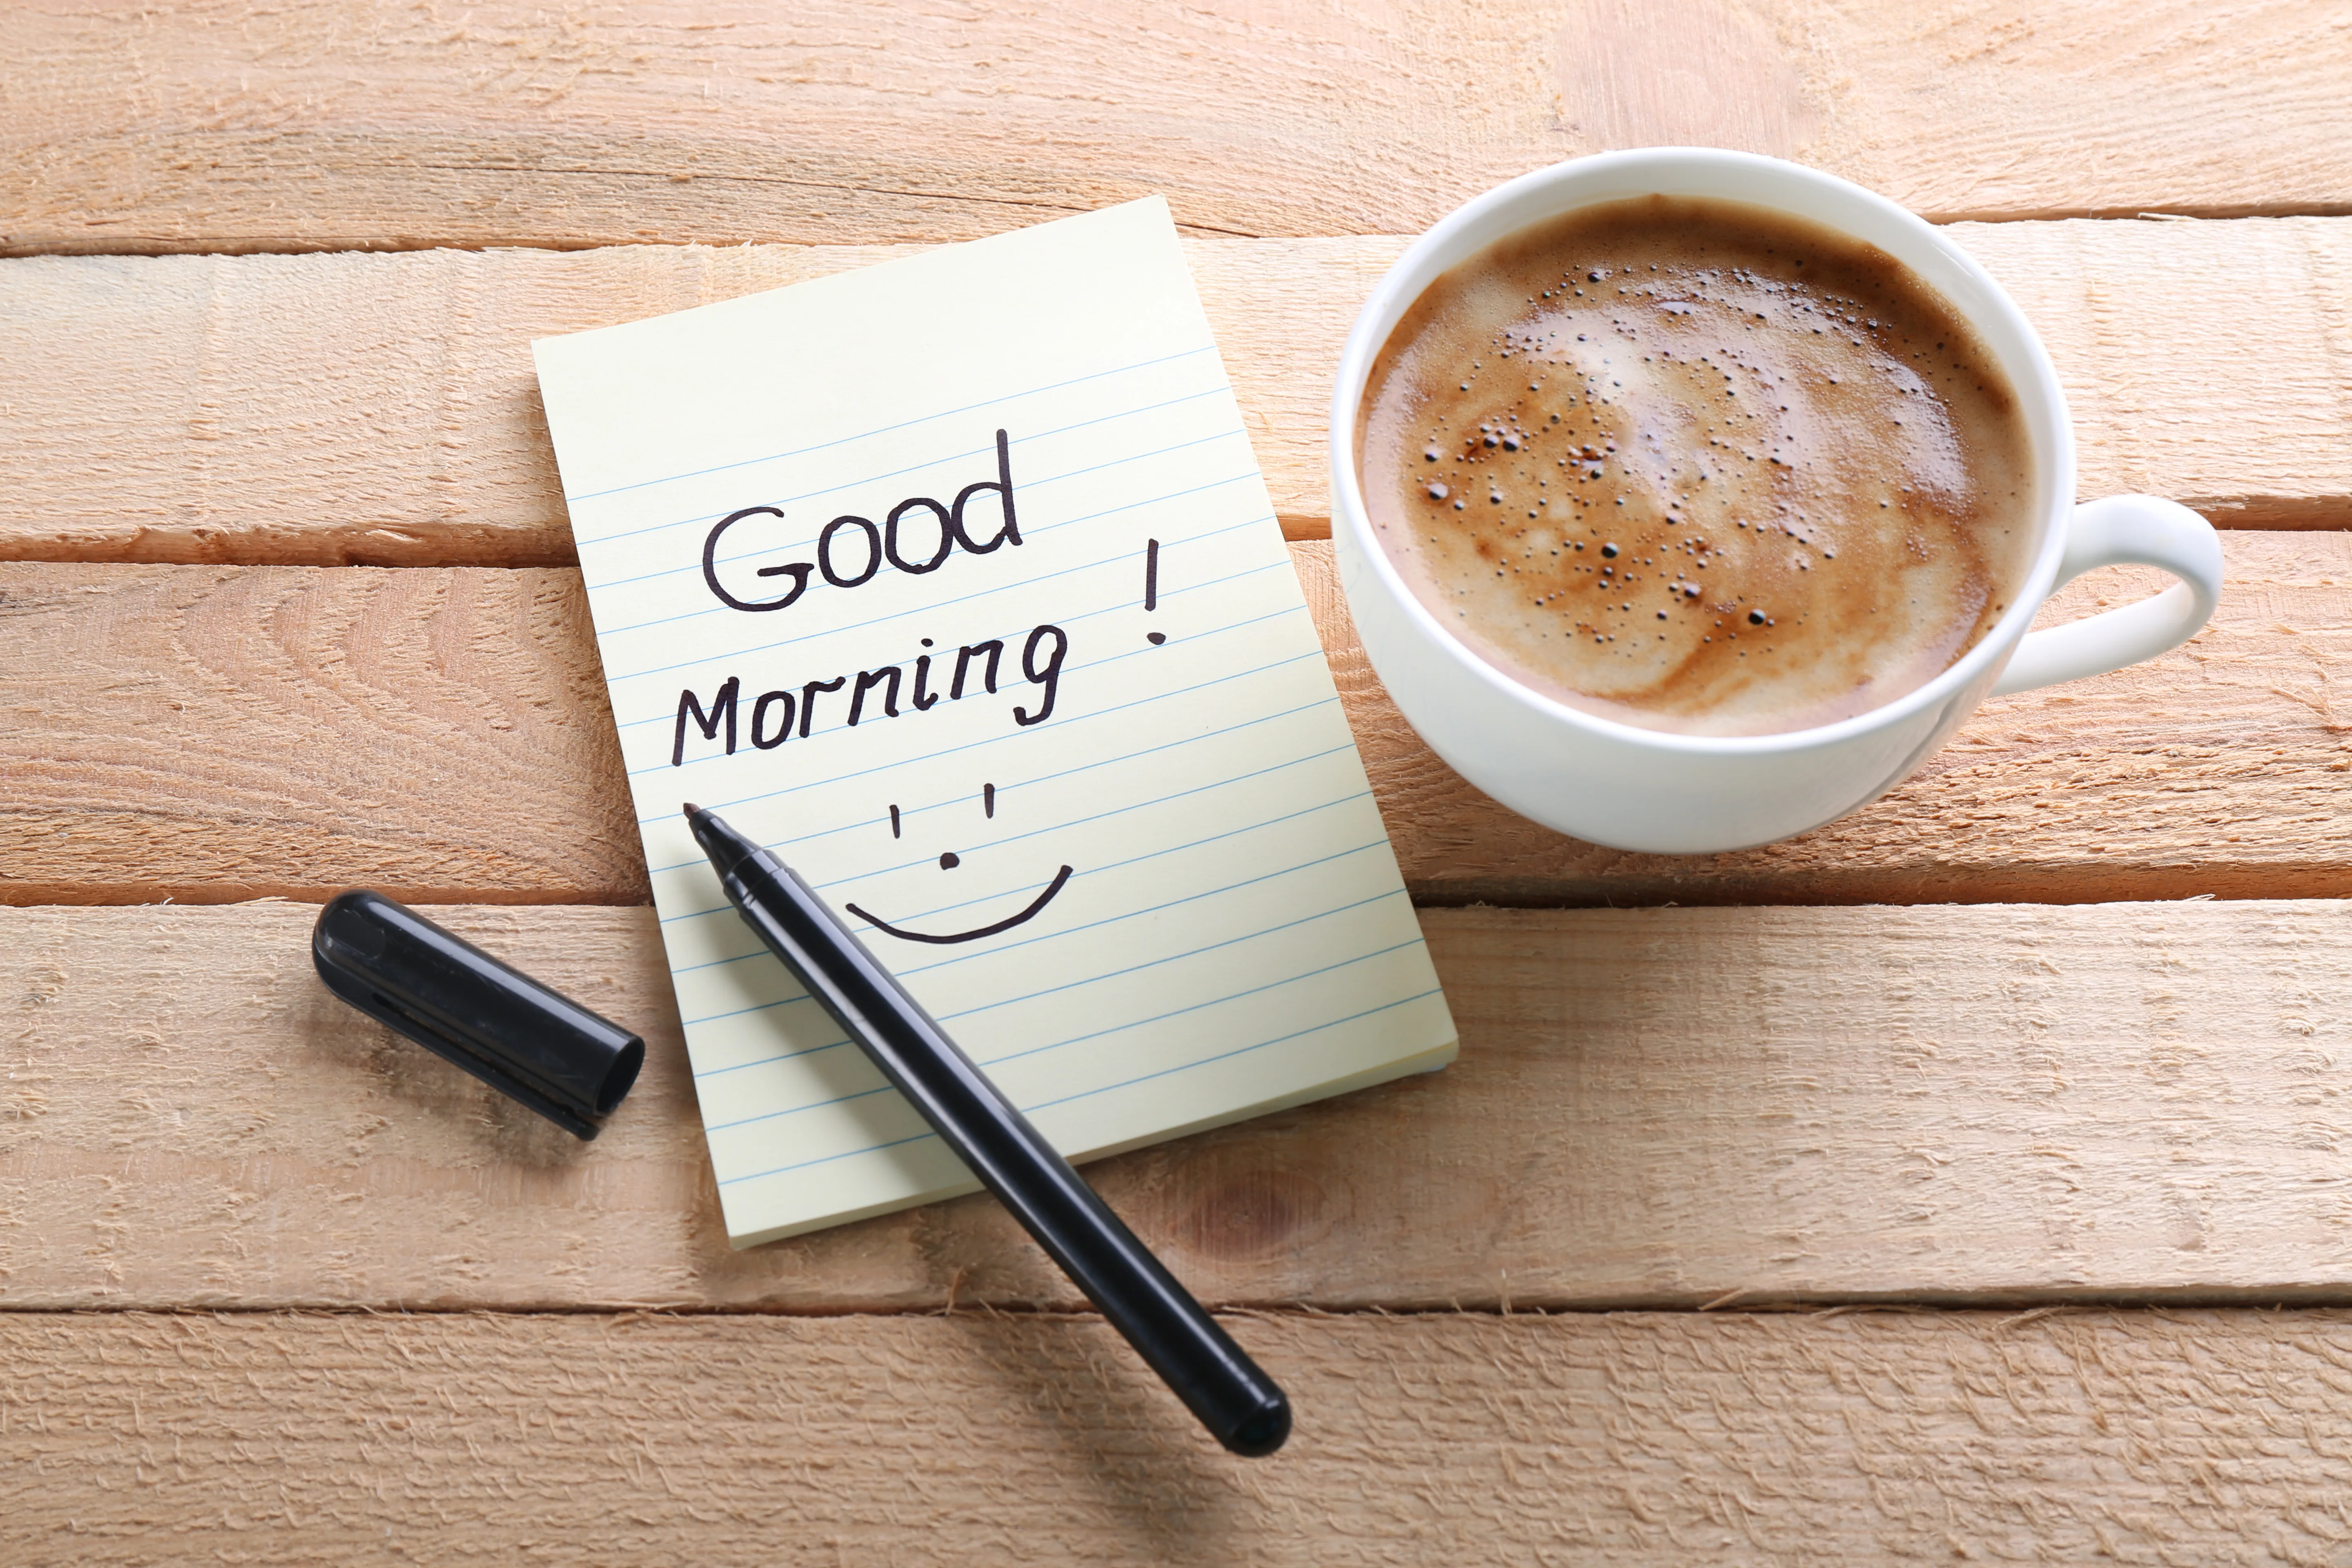 Good
Morning !